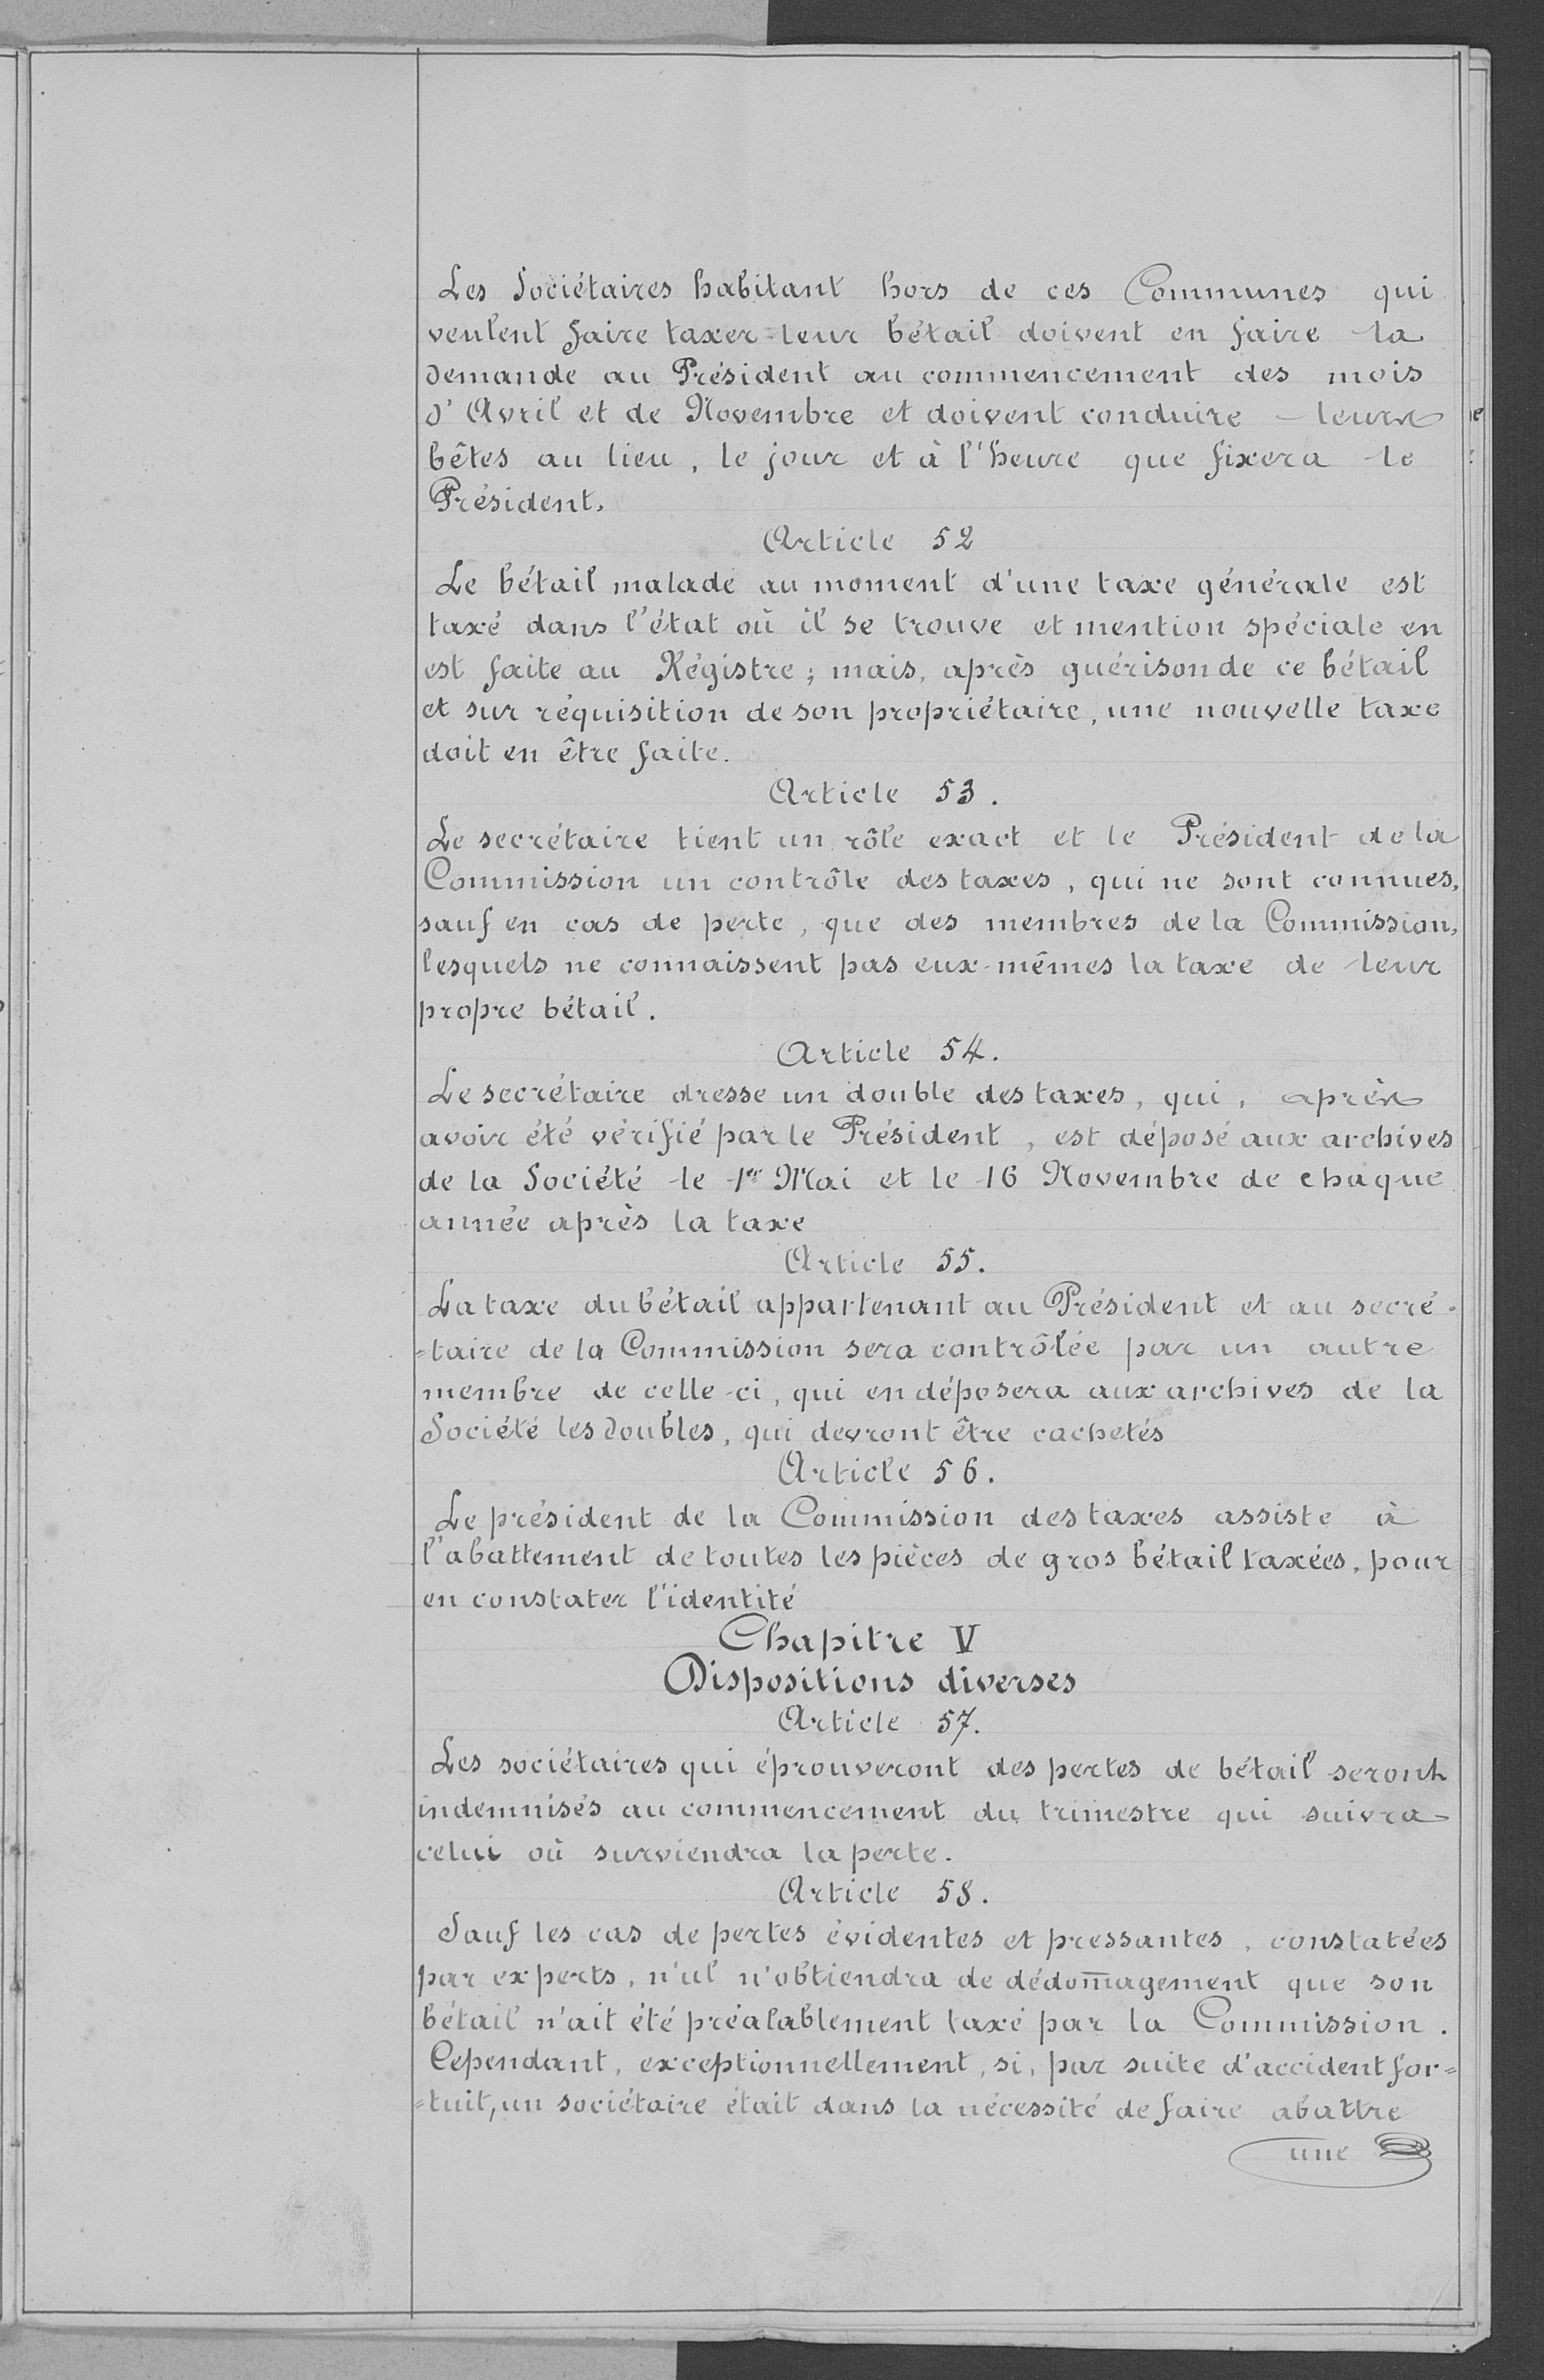 Les Sociétaires habitant hors de ces Communes qui
veulent faire taxer leur bétail doivent en faire la
demande au Président au commencement des mois
d'Avril et de Novembre et doivent conduire leurs
bêtes au lieu, le jour et à l'heure que fixera le
Président.
Article 52
Le bétail malade au moment d'une taxe générale est
taxé dans l'état où il se trouve et mention spéciale en
est faite au Régistre; mais, après guérison de ce bétail
et sur réquisition de son propriétaire, une nouvelle taxe
doit en être faite.
Article 53.
Le secrétaire tient un rôle exact et le Président de la
Commission un contrôle des taxes, qui ne sont connues,
sauf en cas de perte, que des membres de la Commission,
lesquels ne connaissent pas eux-mêmes la taxe de leur
propre bétail.
Article 54.
Le secrétaire dresse un double des taxes, qui, après
avoir été vérifié par le Président, est déposé aux archives
de la Société le 1er Mai et le 16 Novembre de chaque
année après la taxe
Article 55.
La taxe du bétail appartenant au Président et au secré-
=taire de la Commission sera contrôlée par un autre
membre de celle-ci, qui en déposera aux archives de la
Société les doubles, qui devront être cachetés
Article 56.
Le président de la Commission des taxes assiste à
l'abattement de toutes les pièces de gros bétail taxées, pour
en constater l'identité
Chapitre V
Dispositions diverses
Article 57.
Les sociétaires qui éprouveront des pertes de bétail seront
indemnisés au commencement du trimestre qui suivra
celui où surviendra la perte.
Article 58.
Sauf les cas de pertes évidentes et pressantes, constatées
par experts, n'ul n'obtiendra de dédom̅agement que son
bétail n'ait été préalablement taxé par la Commission.
Cependant, exceptionnellement, si, par suite d'accident for=
=tuit, un sociétaire était dans la nécessité de faire abattre
une